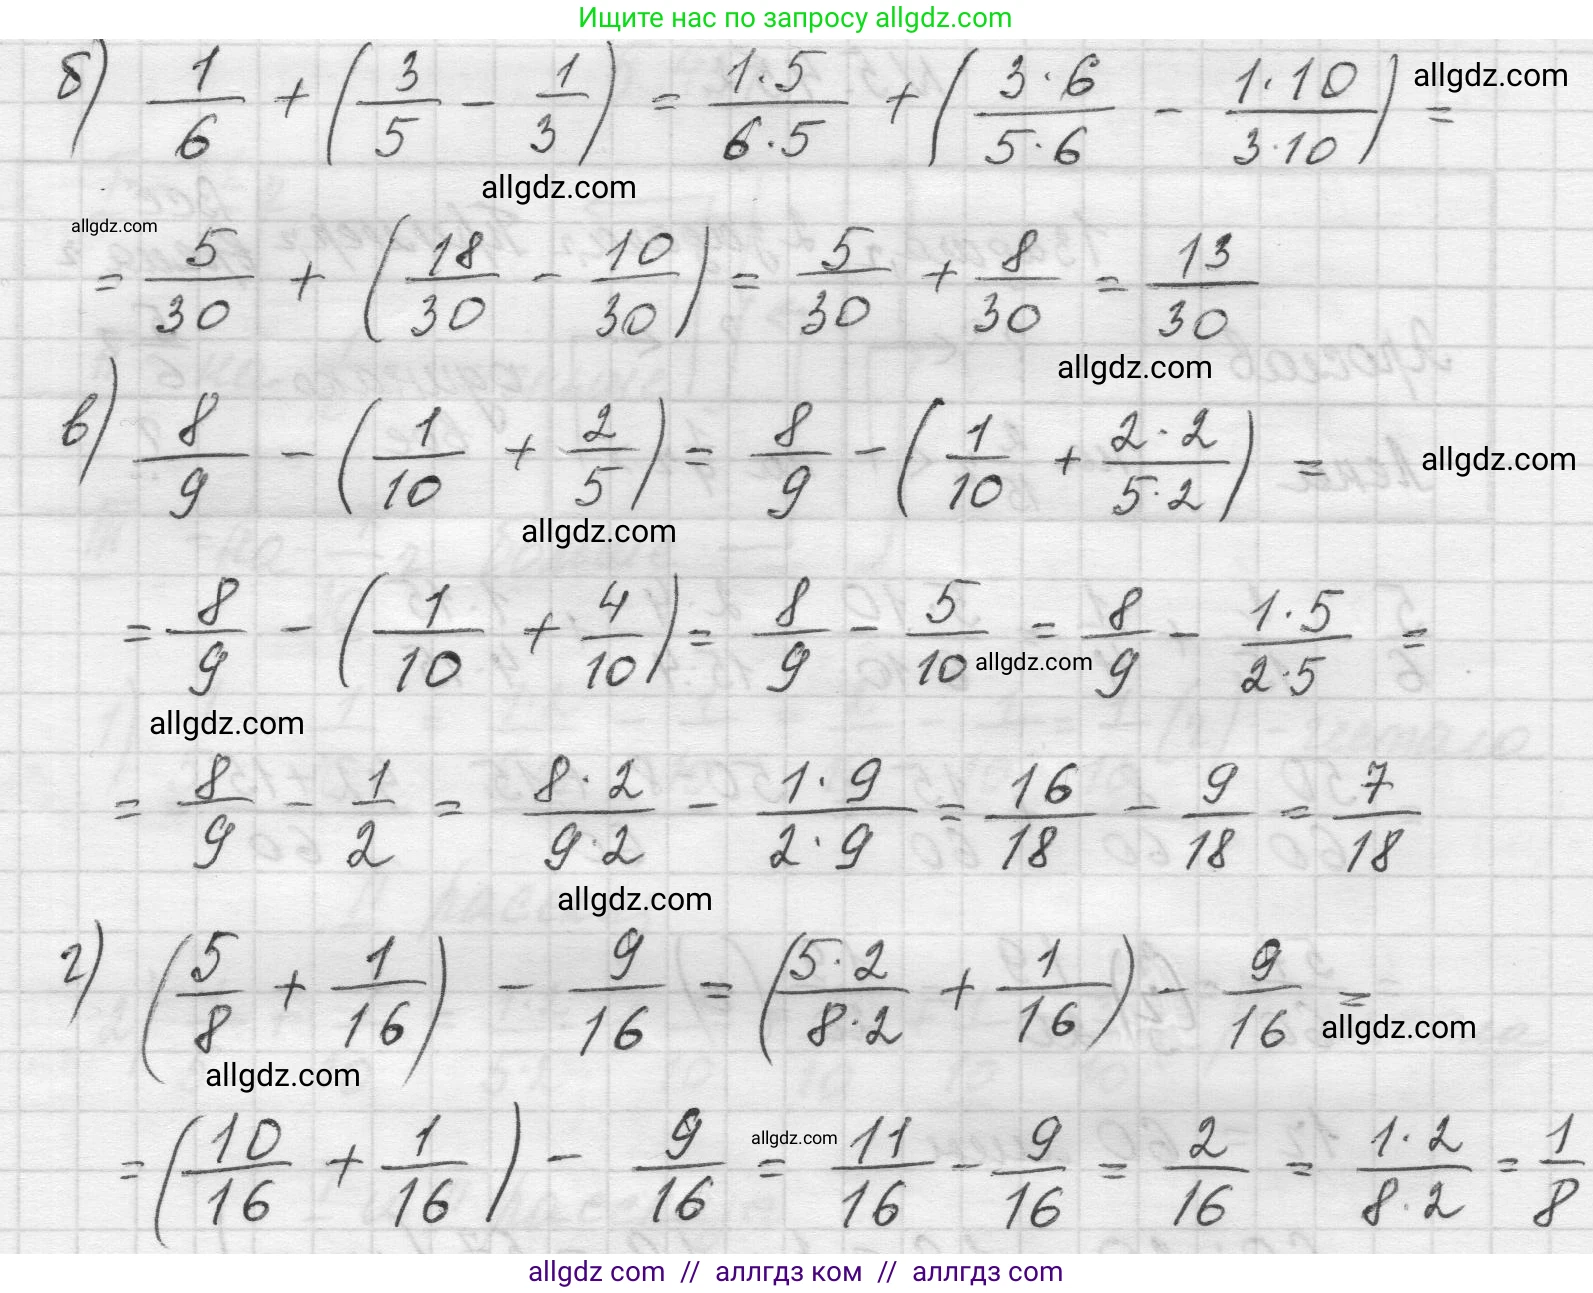 Ищите нас по запросу allgdz.com
б) 1/6 + (3/5 - 1/3) = 1·5/6·5 + (3·6/5·6 - 1·10/3·10) = allgdz.com
allgdz.com
allgdz.com
= 5/30 + (18/30 - 10/30) = 5/30 + 8/30 = 13/30
allgdz.com
в) 8/9 - (1/10 + 2/5) = 8/9 - (1/10 + 2·2/5·2) = allgdz.com
allgdz.com
= 8/9 - (1/10 + 4/10) = 8/9 - 5/10 = 8/9 - 1·5/2·5 =
allgdz.com
allgdz.com
= 8/9 - 1/2 = 8·2/9·2 - 1·9/2·9 = 16/18 - 9/18 = 7/18
allgdz.com
г) (5/8 + 1/16) - 9/16 = (5·2/8·2 + 1/16) - 9/16 =
allgdz.com
allgdz.com
allgdz.com
= (10/16 + 1/16) - 9/16 = 11/16 - 9/16 = 2/16 = 1·2/8·2 = 1/8
allgdz com // аллгдз ком // аллгдз com